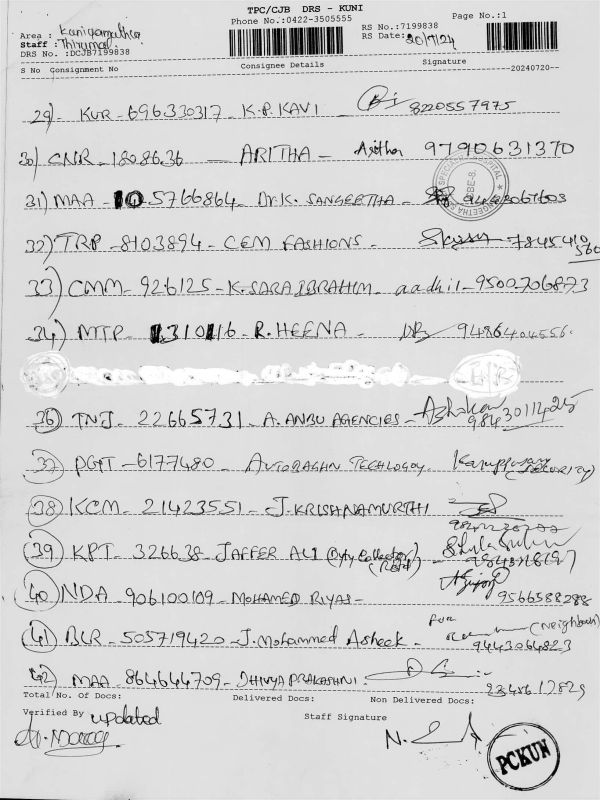 TPC/CJB DRS - KUNI
Phone No.:0422-3505555
Page No.:1
Area : Kaniyamuthur
Staff : Thirumal.
DRS No. :DCJB7199838
RS No.:7199838
RS Date: 20/7/24
S No Consignment No Consignee Details Signature
20240720
29)- KUR - 696330317 - K.P. KAVI 8220557975
30) CNR - 1808636 - ARITHA - Aritha 9790631370
31) MAA - 10 5766864 - Dr. K. SANGEETHA -
32) TRP - 8103894 - CEM FASHIONS - 7845410560
33) CMM - 926125 - K. SARA IBRAHIM - aadhil - 9500706873
34) MTP - 1310116 - R. HEENA - 9486404556.
36) TNJ - 22665731 - A. ANBU AGENCIES - 9843011425
37) PGT - 6177480 - AUTOBAGHN TECHLOGOY. Karuppusamy (SECURITY)
38) KCM - 21423551 - J. KRISHNAMURTHI
39) KPT - 326638 - JAFFER ALI
40) NDA - 906100109 - MOHAMED RIYAS - 9566588288
41) BLR - 505719420 - J. Mohammed Asheek - for (Neighbour) 9443064823
42) MAA - 864644709 - DHIVYA PRAKASHNI.
Total No. Of Docs: Delivered Docs: Non Delivered Docs:
Verified By updated Staff Signature
PCKUN